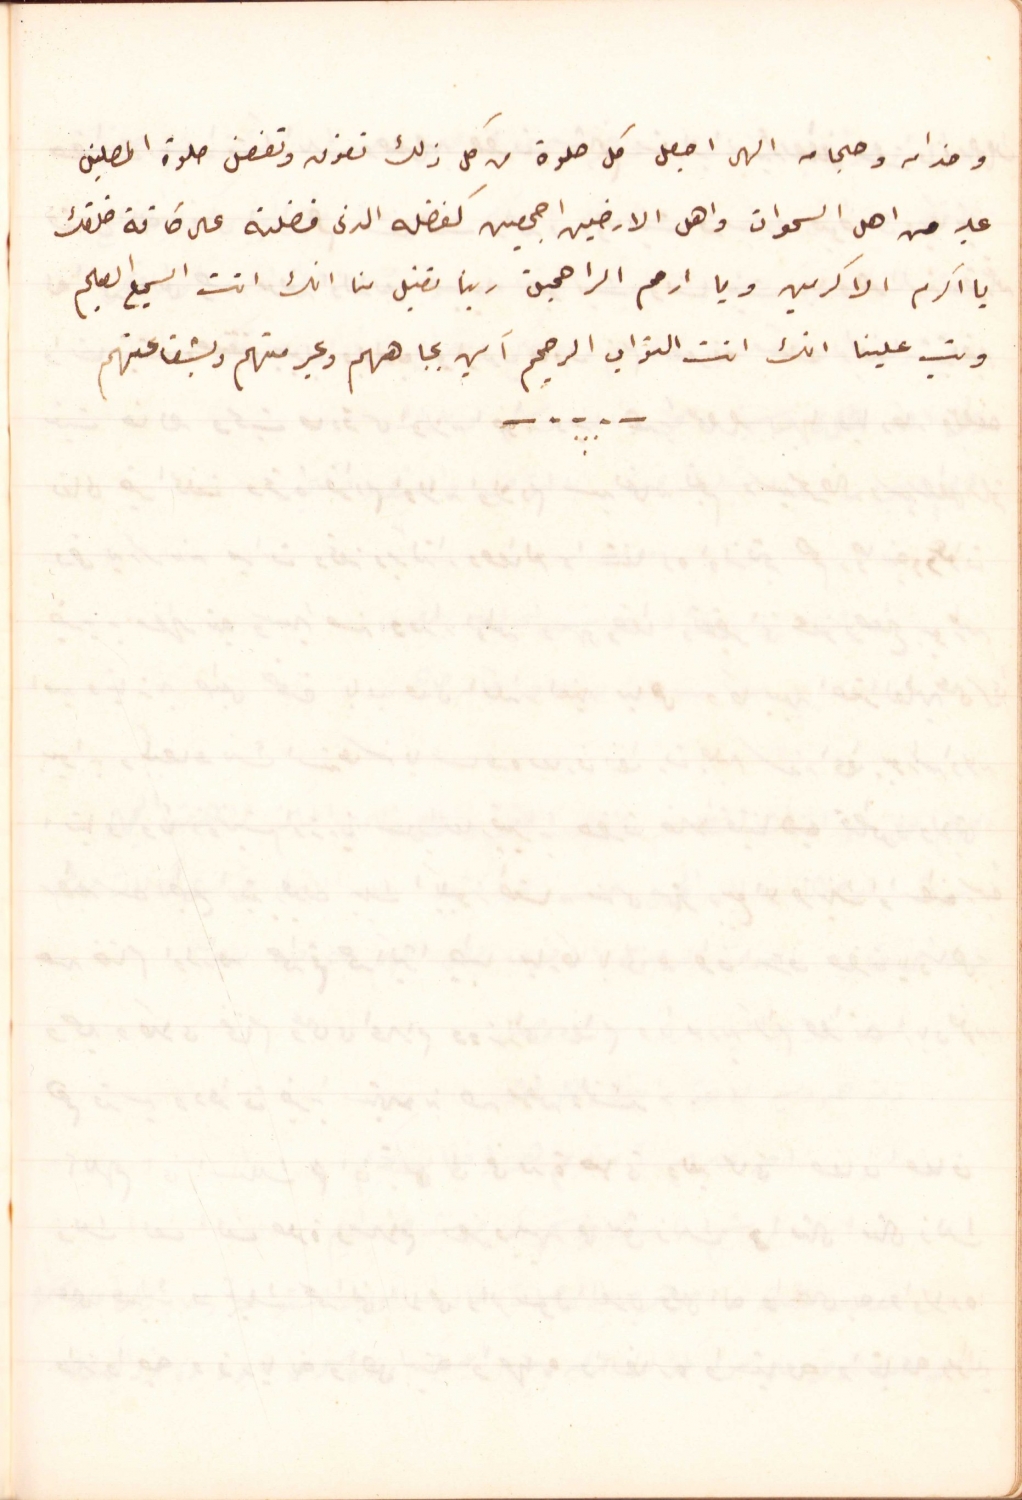 وخدامه وحجابه الهى اجعل كل صلوة من كل ذلك تفوق وتفضل صلوة المصلين
عليه من اهل السموات واهل الارضين اجمعين كفضله الذى فضلته على كافة خلقك
يا اكرم الاكرمين ويا ارحم الراحمين ربنا تقبل منا انك انت السميع العليم
وتب علينا انك انت التواب الرحيم آمين بجاههم وبحرمتهم وبشفاعتهم